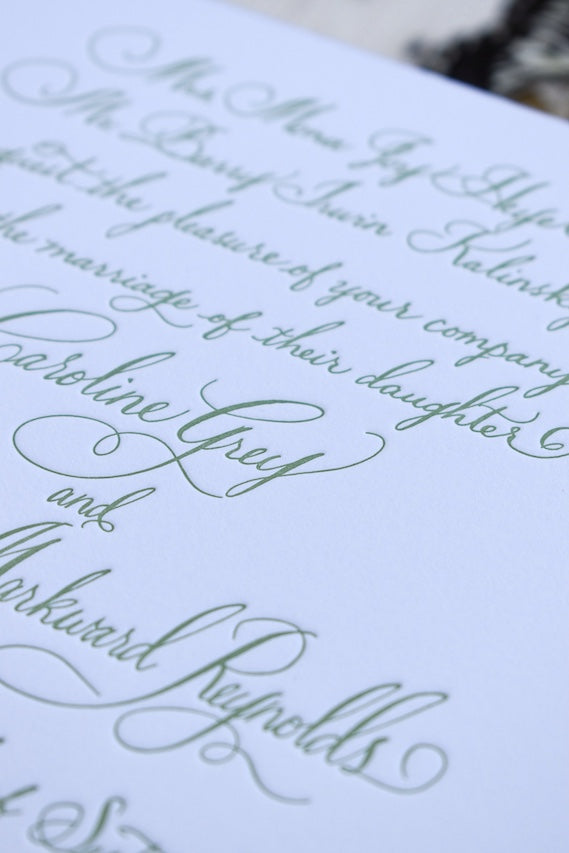 Mona Joy
Mr. Barry Irwin Kalinsky
the pleasure of your company
the marriage of their daughter
Caroline Grey
and
Markward Reynolds